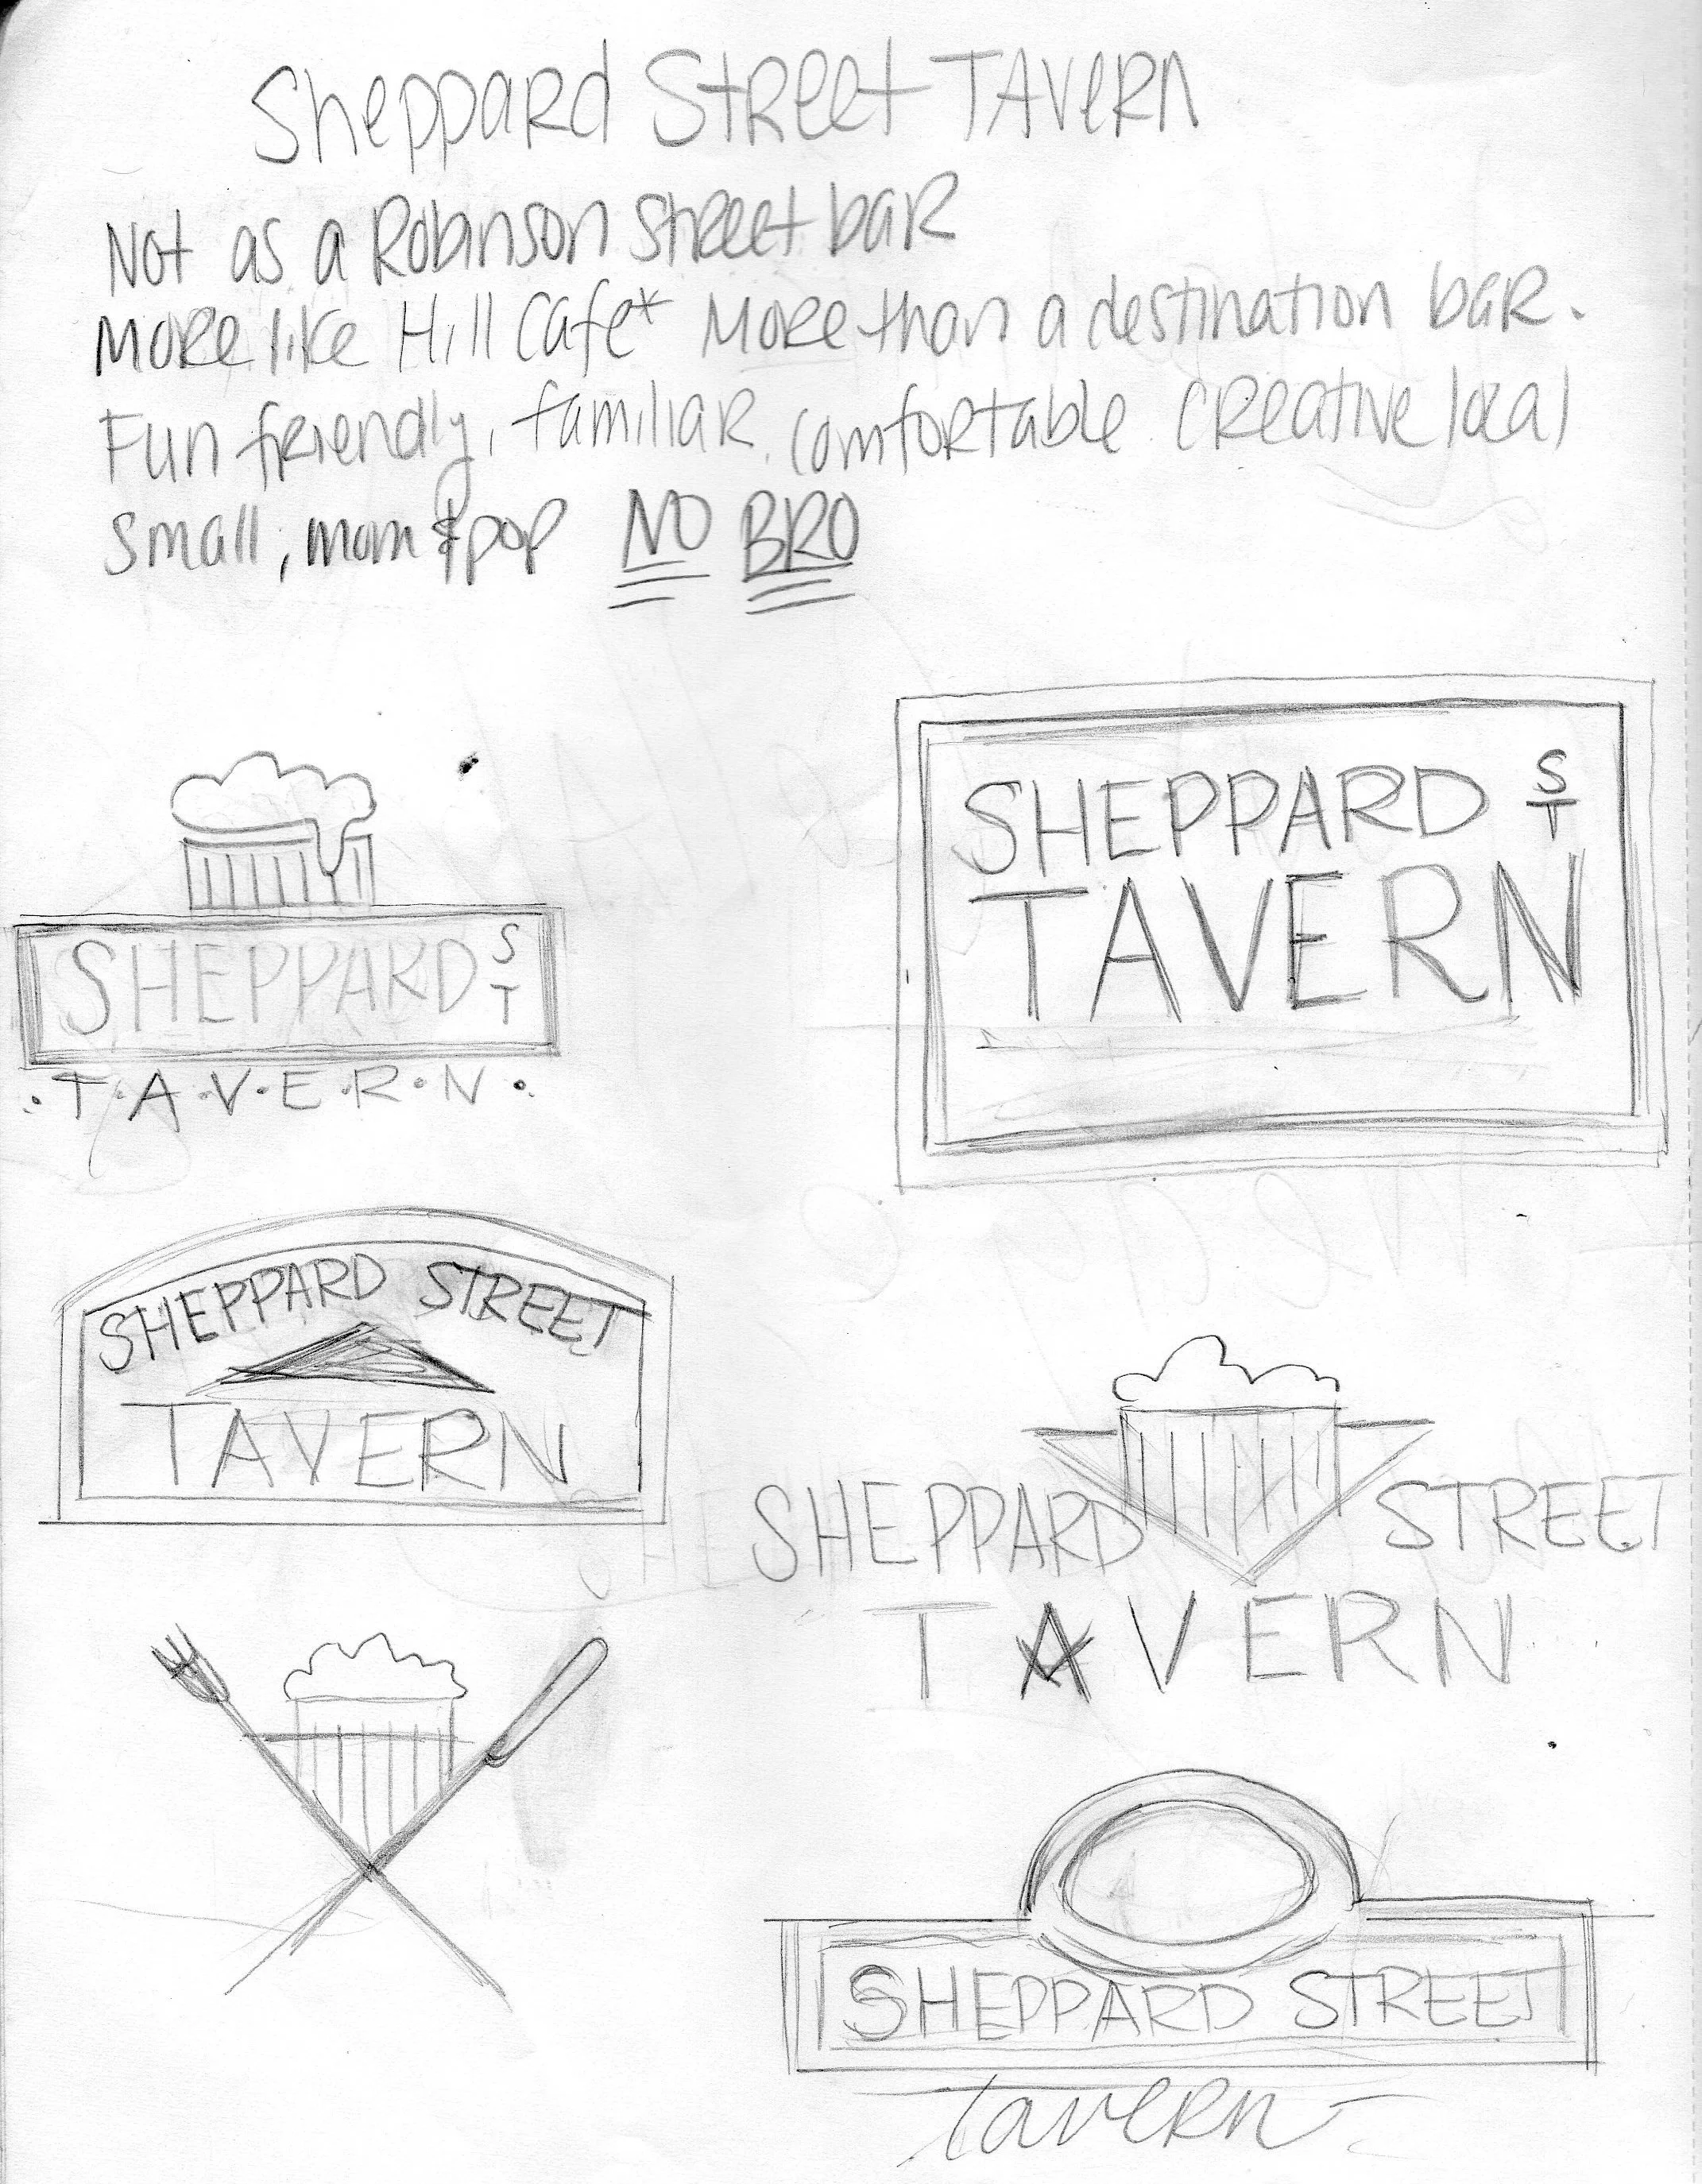 Sheppard Street Tavern
Not as a Robinson Street bar
More like Hill Cafe* More than a destination bar.
Fun friendly, familiar. comfortable creative local
small, mom & pop NO BRO
SHEPPARD ST
TAVERN
SHEPPARD ST
.T.A.V.E.R.N.
SHEPPARD STREET
TAVERN
SHEPPARD STREET
TAVERN
SHEPPARD STREET
tavern